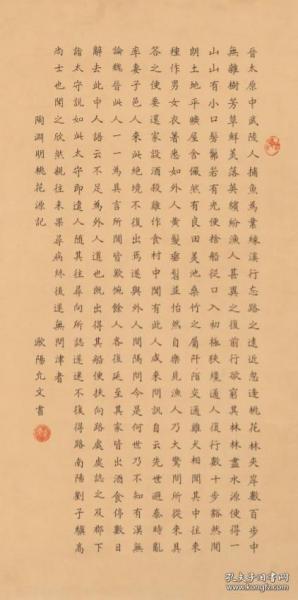 晉太原中武陵人捕魚為業緣溪行忘路之遠近忽逢桃花林夾岸數百步中
無雜樹芳草鮮美落英繽紛漁人甚異之復前行欲窮其林林盡水源便得一
山山有小口髣髴若有光便捨船從口入初極狹纔通人復行數十步豁然開
朗土地平曠屋舍儼然有良田美池桑竹之屬阡陌交通雞犬相聞其中往來
種作男女衣著悉如外人黃髮垂髫並怡然自樂見漁人乃大驚問所從來具
答之便要還家設酒殺雞作食村中聞有此人咸來問訊自云先世避秦時亂
率妻子邑人來此絕境不復出焉遂與外人間隔問今是何世乃不知有漢無
論魏晉此人一一為具言所聞皆歎惋餘人各復延至其家皆出酒食停數日
辭去此中人語云不足為外人道也既出得其船便扶向路處處誌之及郡下
詣太守說如此太守即遣人隨其往尋向所誌遂迷不復得路南陽劉子驥高
尚士也聞之欣然親往未果尋病終後遂無問津者
陶淵明桃花源記 歐陽允文書
孔夫子旧书网